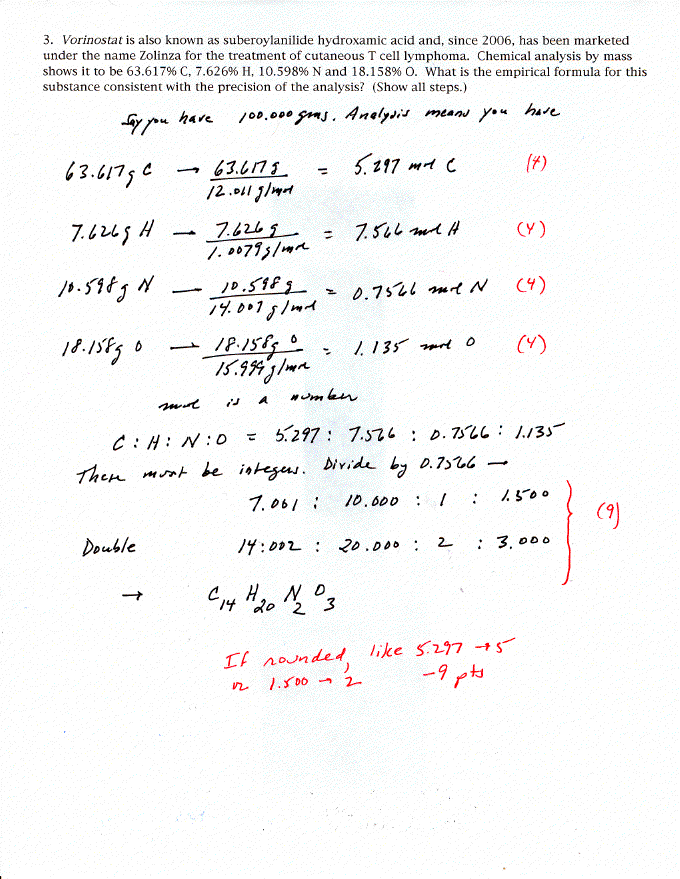 3. Vorinostat is also known as suberoylanilide hydroxamic acid and, since 2006, has been marketed
under the name Zolinza for the treatment of cutaneous T cell lymphoma. Chemical analysis by mass
shows it to be 63.617% C, 7.626% H, 10.598% N and 18.158% O. What is the empirical formula for this
substance consistent with the precision of the analysis? (Show all steps.)
Say you have 100.000 gms. Analysis means you have
63.617g C → 63.617g / 12.011 g/mol = 5.297 mol C (4)
7.626g H — 7.626 g / 1.0079g/mol = 7.566 mol H (4)
10.598g N — 10.598g / 14.007 g/mol = 0.7566 mol N (4)
18.158g O → 18.158g O / 15.999g/mol = 1.135 mol O (4)
mol is a number
C : H : N : O = 5.297 : 7.566 : 0.7566 : 1.135
These must be integers. Divide by 0.7566 →
7.001 : 10.000 : 1 : 1.500
(9)
Double 14:002 : 20.000 : 2 : 3.000
→ C14 H20 N2 O3
If rounded, like 5.297 → 5
or 1.500 → 2 -9 pts